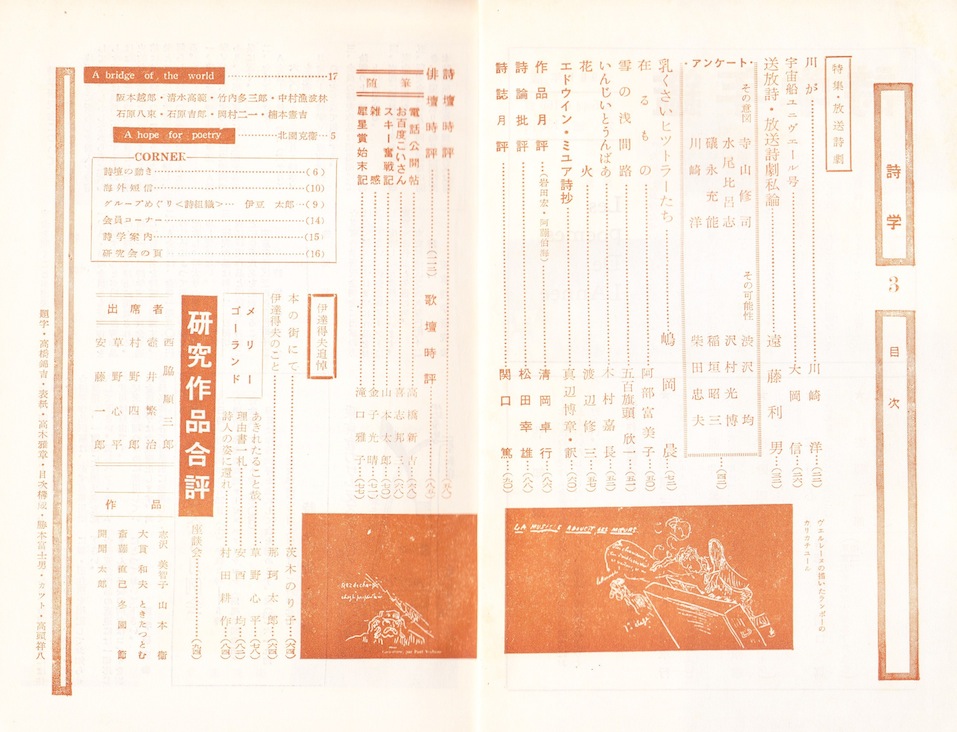 詩学
3
目次
特集・放送詩劇
川が……川崎洋…(二二)
宇宙船ユニヴェール号……大岡信…(一六)
送放詩・放送詩劇私論……遠藤利男…(三三)
・アンケート・
その意図
寺山修司
水尾比呂志
礒永充能
川崎洋
その可能性
渋沢均
沢村光博
稲垣昭三
柴田忠夫
…(四三)
乳くさいヒットラーたち……嶋岡晨…(七二)
在るもの……阿部富美子…(五〇)
雪の浅間路……五百旗頭欣一…(五二)
いんじいとうんばあ……木村嘉長…(五七)
花火……渡辺修三…(五五)
エドウィン・ミユア詩抄……真辺博章・訳…(六〇)
作品月評…(岩田宏・阿部伯海)……清岡卓行…(八五)
詩論批評……松田幸雄…(八八)
詩誌月評……関口篤…(九〇)
ヴェルレーヌの描いたランボーの
カリカチュール
LA MUSIQUE ADOUCIT LES MŒURS
詩壇時評
俳壇時評……(一二三)
歌壇時評
随筆
電話公開帖……高橋新吉…(六八)
お百度こいさん……喜志邦三…(六八)
スキー奮戦記……山本太郎…(七〇)
雑感……金子光晴…(七一)
犀星賞始末記……滝口雅子…(七七)
伊達得夫追悼
本の街にて……茨木のり子…(六四)
伊達得夫のこと……那珂太郎…(六四)
メリーゴーランド
あきれたることと哉……草野心平…(七八)
理由書一札……安西均…(八二)
詩人の姿に還れ……村田耕作…(八四)
研究作品合評
座談会……
出席者
西脇順三郎
壺井繁治
村野四郎
草野心平
安藤一郎
作品
志沢美智子
山本衞
大貫和夫
ときたつとむ
斎藤直巳
冬園節
関聞太郎
A bridge of the world……17
阪本越郎・清水高範・竹内多三郎・中村漁波林
石原八束・石原吉郎・岡村二一・細木憲吉
A hope for poetry……北園克衛…5
CORNER
詩壇の動き……(6)
海外短信……(10)
グループめぐり<詩組織>…伊豆太郎…(9)
会員コーナー……(14)
詩学案内……(15)
研究会の頁……(16)
題字・高橋錦吉・表紙・高木雅章・目次構成・勝本富士男・カット・高頭祥八